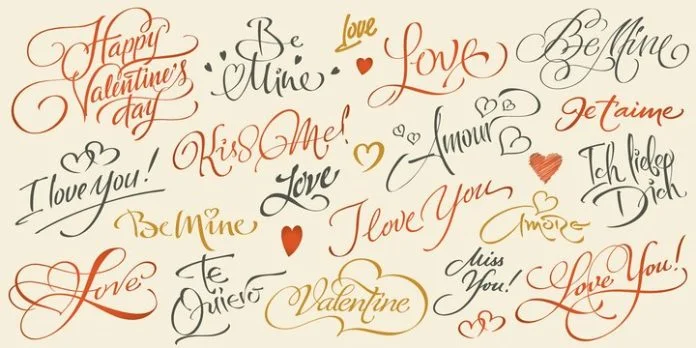 Happy
Valentine's
day
Be
Mine
Love
Love
Be Mine
Kiss Me!
Amour
Je t'aime
I love You!
Love
Ich liebe
Dich
Be Mine
I love You
Amore
Love
Te
Quiero
Valentine
Miss
You!
Love You!